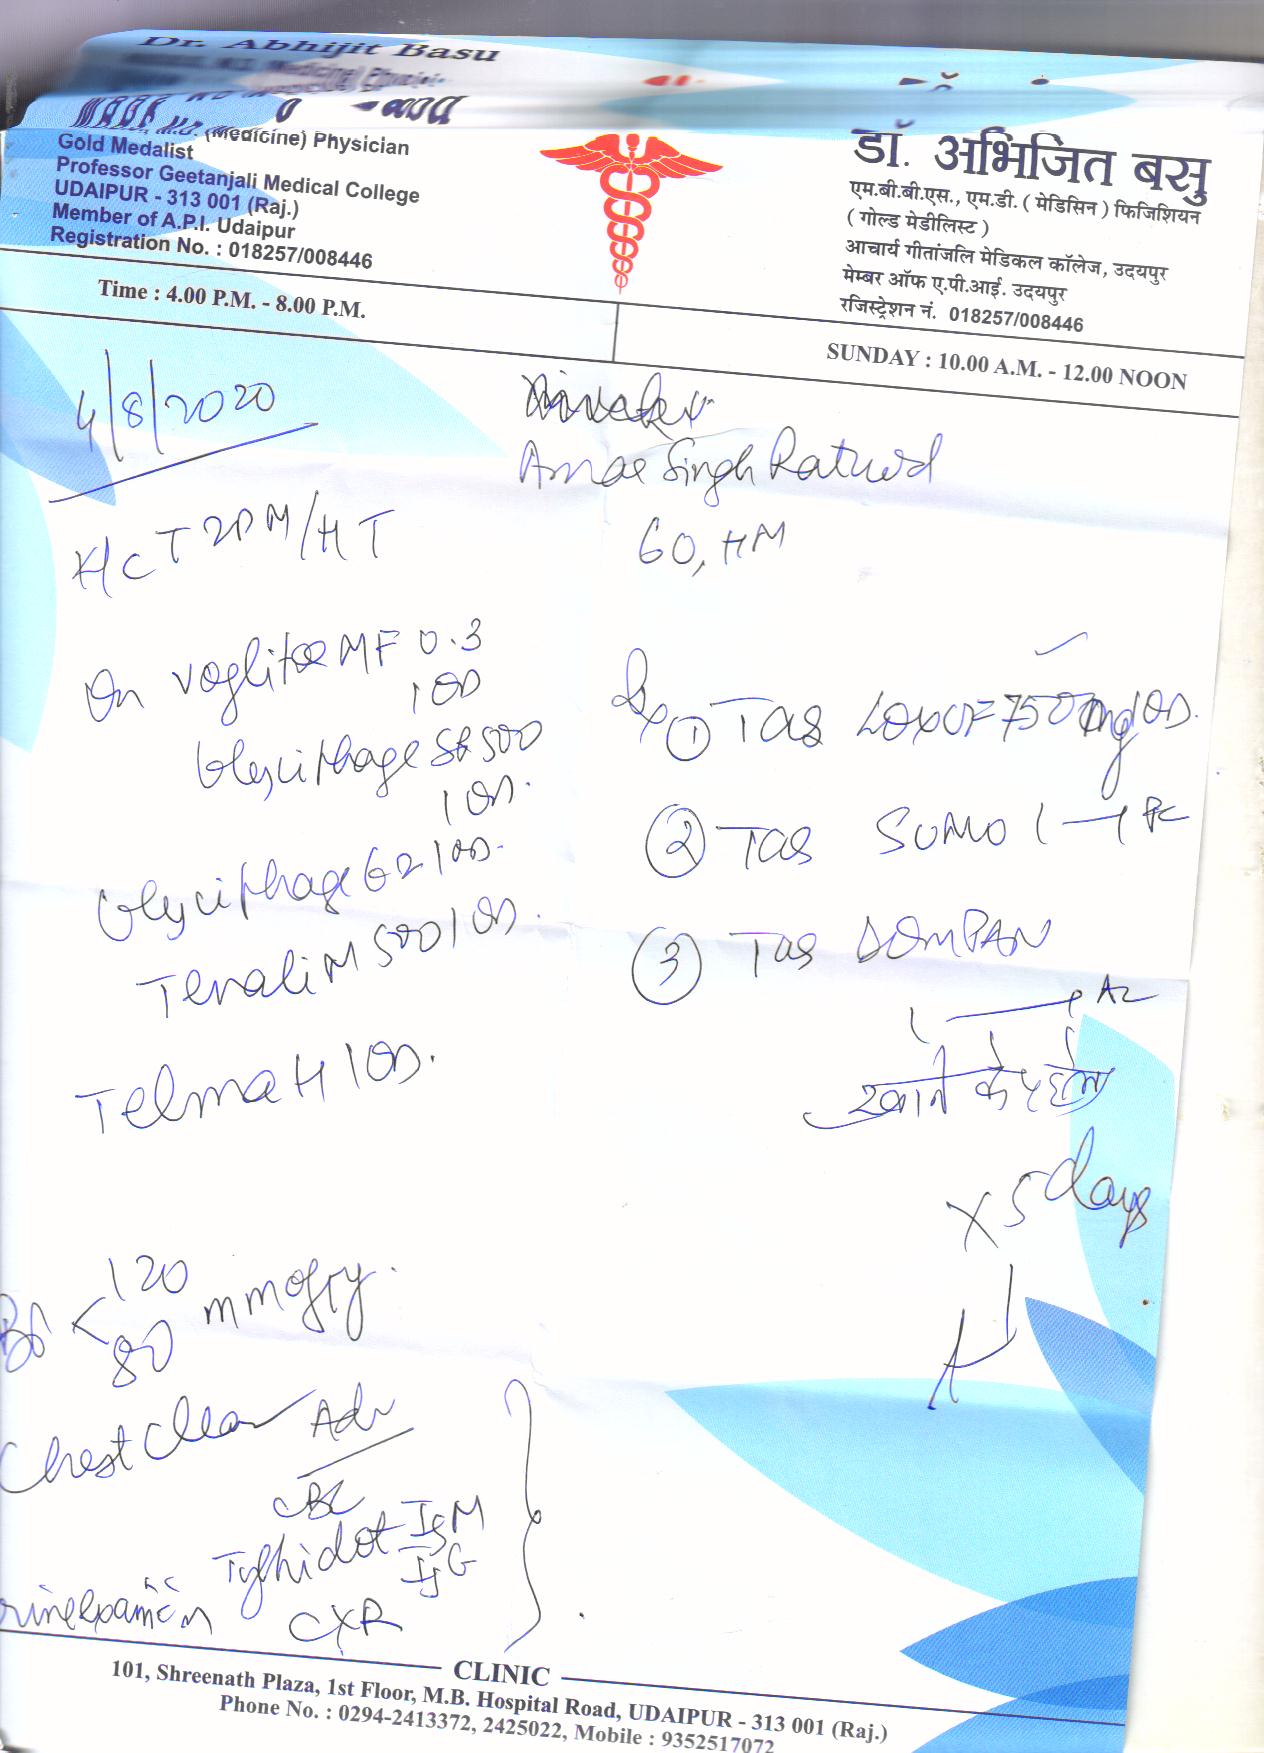 Dr. Abhijit Basu
(Medicine) Physician
Gold Medalist
Professor Geetanjali Medical College
UDAIPUR - 313 001 (Raj.)
Member of A.P.I. Udaipur
Registration No. : 018257/008446
डॉ. अभिजित बसु
एम.बी.बी.एस., एम.डी. ( मेडिसिन ) फिजिशियन
( गोल्ड मेडीलिस्ट )
आचार्य गीतांजलि मेडिकल कॉलेज, उदयपुर
मेम्बर ऑफ ए.पी.आई. उदयपुर
रजिस्ट्रेशन नं. 018257/008446
Time : 4.00 P.M. - 8.00 P.M.
SUNDAY : 10.00 A.M. - 12.00 NOON
4/8/2020
Singh
60, HM
K/C T2DM/HT
On MF 0.3
1 OD
Glyciphage SR 500
1 OD.
Glyciphage G2 1 OD.
Tenali M 500 1 OD.
Telma H 1 OD.
Rx
① Tab 750mg 1 OD.
② Tab SUMO 1 — 1 PC
③ Tab DOMPAN
1 — 1
खाने के पहले
X 5 days
120
80 mmofhg.
Chest Clear
Adv
CBC
Typhidot IgM
IgG
CXR
CLINIC
101, Shreenath Plaza, 1st Floor, M.B. Hospital Road, UDAIPUR - 313 001 (Raj.)
Phone No. : 0294-2413372, 2425022, Mobile : 9352517072